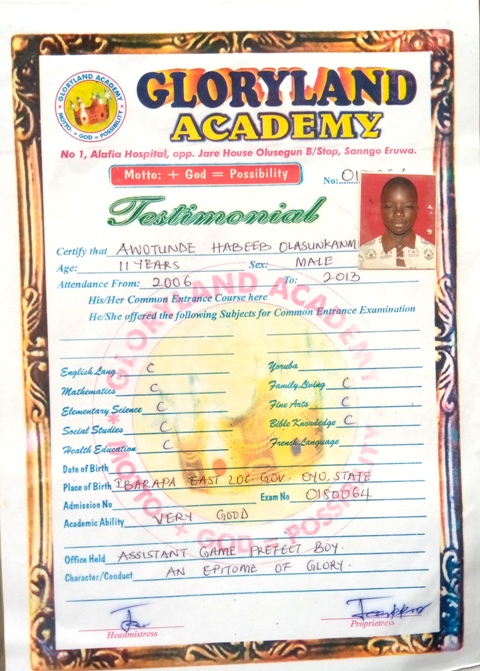 GLORYLAND ACADEMY
MOTTO: + GOD = POSSIBILITY
GLORYLAND
ACADEMY
No 1, Alafia Hospital, opp. Jare House Olusegun B/Stop, Sanngo Eruwa.
Motto: + God = Possibility
No:
Testimonial
Certify that AWOTUNDE HABEEB OLASUNKANMI
Age: 11 YEARS Sex: MALE
Attendance From: 2006 To: 2013
His/Her Common Entrance Course here
He/She offered the following Subjects for Common Entrance Examination
English Lang C Yoruba
Mathematics C Family Living C
Elementary Science C Fine Arts C
Social Studies C Bible Knowledge C
Health Education C French Language
Date of Birth
Place of Birth IBARAPA EAST LOC. GOV. OYO, STATE
Admission No Exam No 0180064
Academic Ability VERY GOOD
Office Held ASSISTANT GAME PREFECT BOY.
Character/Conduct AN EPITOME OF GLORY.
Headmistress Proprietress